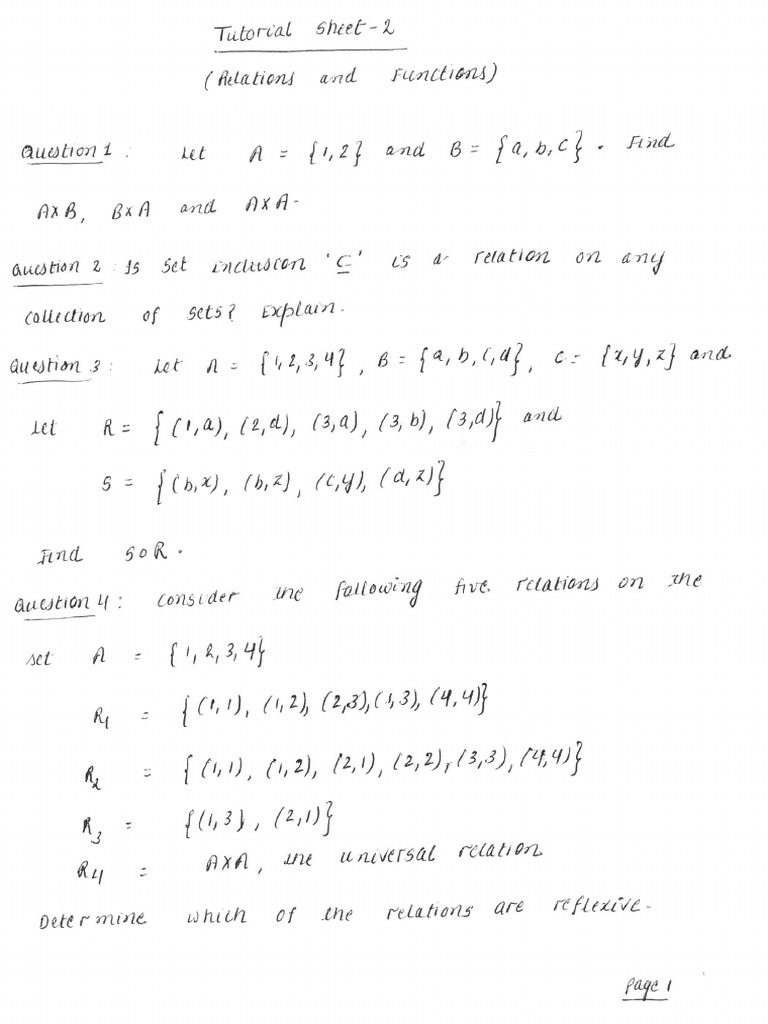 Tutorial Sheet-2
(Relations and Functions)
Question 1: Let A = {1,2} and B = {a,b,c}. Find
AxB, BxA and AxA.
Question 2: Is set inclusion '⊆' is a relation on any
collection of sets? Explain.
Question 3: Let A = {1,2,3,4}, B = {a,b,c,d}, C = {x,y,z} and
Let R = {(1,a), (2,d), (3,a), (3,b), (3,d)} and
S = {(b,x), (b,z), (c,y), (d,z)}
Find SoR.
Question 4: Consider the following five relations on the
set A = {1,2,3,4}
R1 = {(1,1), (1,2), (2,3), (1,3), (4,4)}
R2 = {(1,1), (1,2), (2,1), (2,2), (3,3), (4,4)}
R3 = {(1,3), (2,1)}
R4 = AxA, the universal relation
Determine which of the relations are reflexive.
Page 1